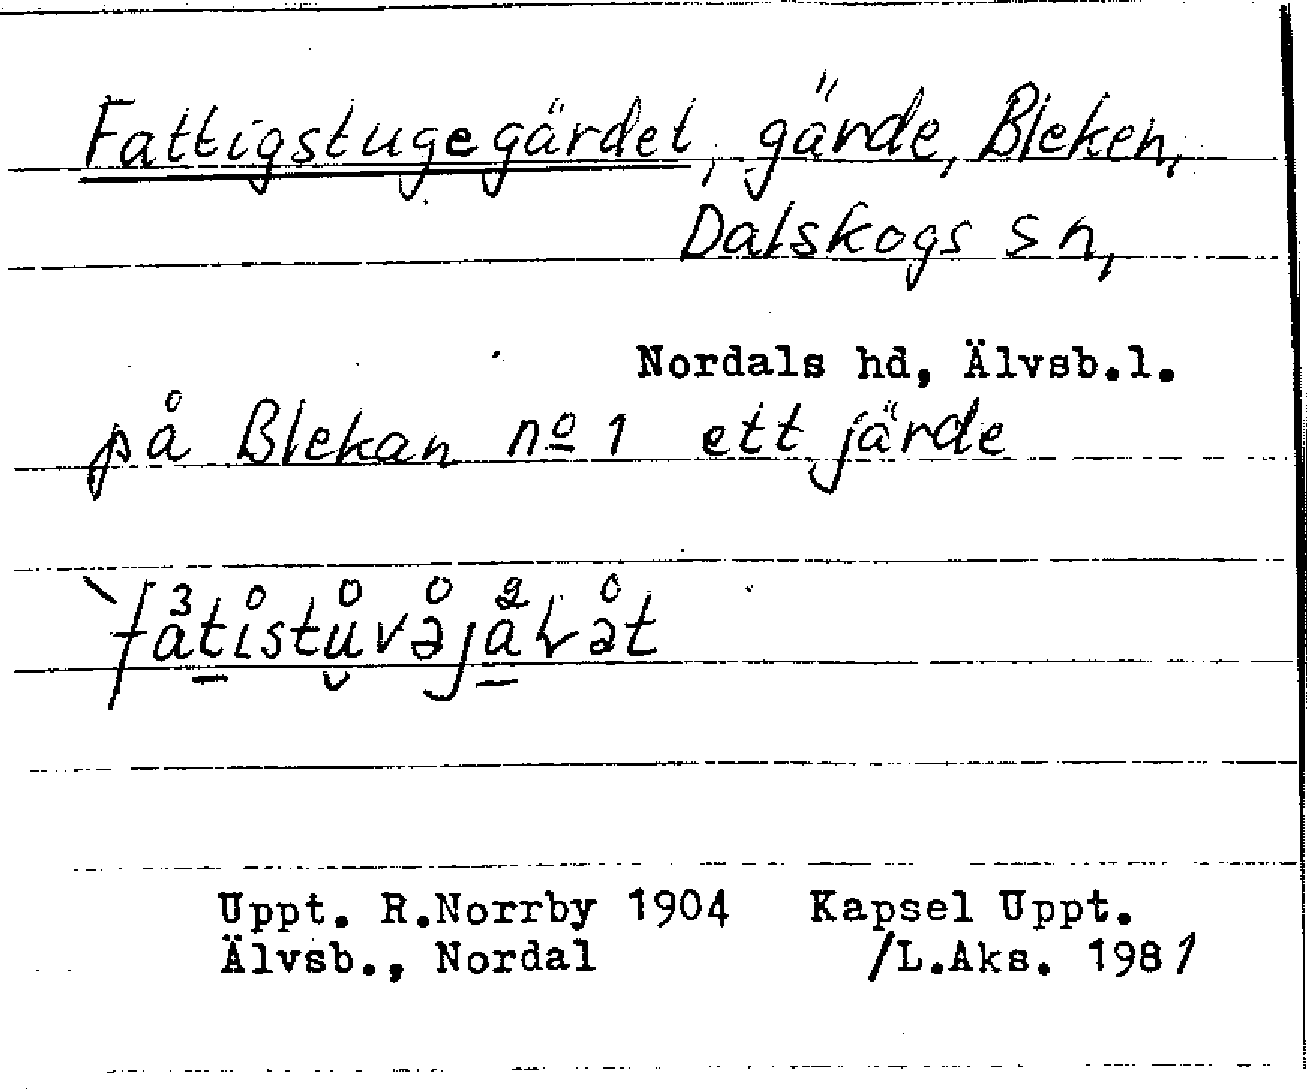 Fattigstugegärdet, gärde, Bleken,
Dalskogs sn,
Nordals hd, Älvsb.l.
på Blekan nº 1 ett järde
Uppt. R.Norrby 1904 Kapsel Uppt.
Älvsb., Nordal /L.Aks. 1981